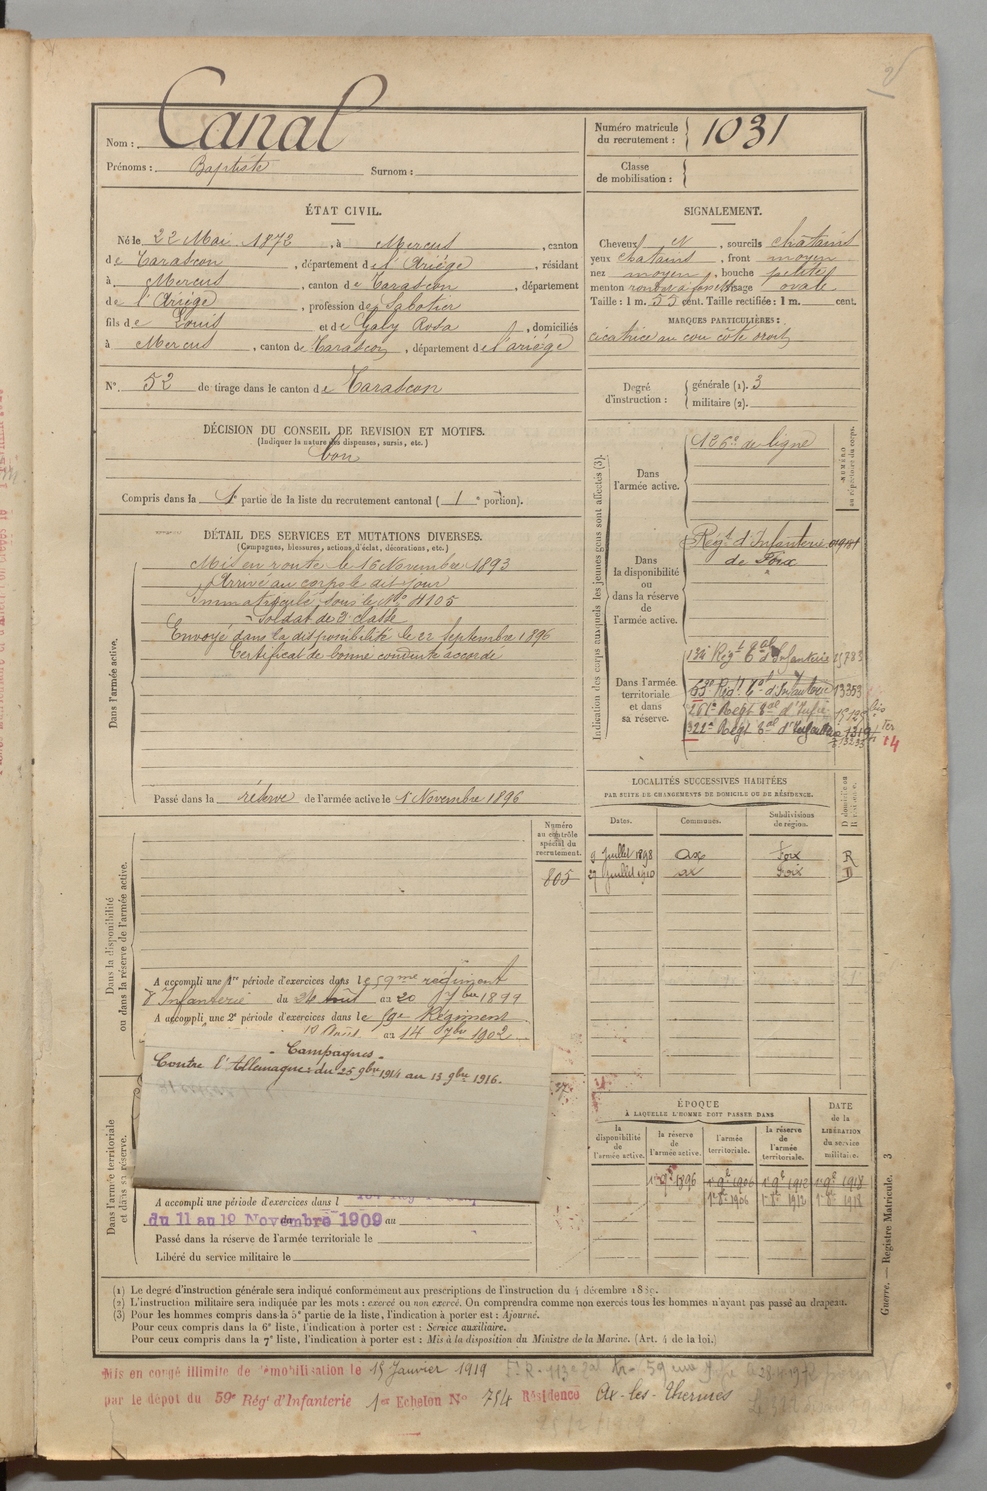 Nom : Canal
Prénoms : Baptiste Surnom :
Numéro matricule du recrutement : 1031
Classe de mobilisation :
ÉTAT CIVIL.
Né le 22 Mai 1872, à Mercus, canton
de Tarascon, département de l'Ariége, résidant
à Mercus, canton de Tarascon, département
de l'Ariége, profession de Sabotier
fils de Louis et de Galy Rosa, domiciliés
à Mercus, canton de Tarascon, département de l'ariége
N° 52 de tirage dans le canton de Tarascon
SIGNALEMENT.
Cheveux et, sourcils chatains
yeux chatains, front moyen
nez moyen, bouche petite
menton rond et à fossette visage ovale
Taille : 1 m. 55 cent. Taille rectifiée : 1 m. cent.
MARQUES PARTICULIÈRES :
cicatrice au cou côté droit
Degré d'instruction : générale (1). 3
militaire (2).
DÉCISION DU CONSEIL DE REVISION ET MOTIFS.
(Indiquer la nature des dispenses, sursis, etc.)
bon
Compris dans la 1e partie de la liste du recrutement cantonal ( 1 e portion).
DÉTAIL DES SERVICES ET MUTATIONS DIVERSES.
(Campagnes, blessures, actions d'éclat, décorations, etc.)
Dans l'armée active.
Mis en route le 16 Novembre 1893
Arrivé au corps le dit jour
Immatriculé sous le N° 4105
Soldat de 2e classe
Envoyé dans la disponibilité le 22 Septembre 1896
Certificat de bonne conduite accordé
Passé dans la réserve de l'armée active le 1r Novembre 1896
Indication des corps auxquels les jeunes gens sont affectés (3).
NUMÉRO au répertoire du corps.
Dans l'armée active.
126e de ligne
Dans la disponibilité ou dans la réserve de l'armée active.
Regt d'Infanterie
de Foix
Dans l'armée territoriale et dans sa réserve.
134e Regt Eal d'Infanterie 15783
63e Regt 13353
LOCALITÉS SUCCESSIVES HABITÉES
PAR SUITE DE CHANGEMENTS DE DOMICILE OU DE RÉSIDENCE.
Dates. Communes. Subdivisions de région. D domicile ou R résidence.
9 Juillet 1898 Ax Foix R
27 Juillet 1910 ax Foix D
Dans la disponibilité ou dans la réserve de l'armée active.
Numéro au contrôle spécial du recrutement.
805
A accompli une 1re période d'exercices dans le 59me régiment
d'Infanterie du 24 Août au 20 7bre 1899
A accompli une 2e période d'exercices dans le 59e Régiment
Août au 14 7bre 1902
- Campagnes -
Contre l'Allemagne : du 25 9bre 1914 au 13 9bre 1916.
Dans l'armée territoriale et dans sa réserve.
A accompli une période d'exercices dans l
du 11 au 19 Novembre 1909 au
Passé dans la réserve de l'armée territoriale le
Libéré du service militaire le
ÉPOQUE
À LAQUELLE L'HOMME DOIT PASSER DANS
la disponibilité de l'armée active. la réserve de l'armée active. l'armée territoriale. la réserve de l'armée territoriale.
DATE de la LIBÉRATION du service militaire.
1r 9bre 1896 1r 9e 1906 1r 9e 1912 1r 9e 1918
1r 8e 1906 1r 8e 1912 1r 8e 1918
Guerre. — Registre Matricule. 3
(1) Le degré d'instruction générale sera indiqué conformément aux prescriptions de l'instruction du 4 décembre 1889.
(2) L'instruction militaire sera indiquée par les mots : exercé ou non exercé. On comprendra comme non exercés tous les hommes n'ayant pas passé au drapeau.
(3) Pour les hommes compris dans la 5e partie de la liste, l'indication à porter est : Ajourné.
Pour ceux compris dans la 6e liste, l'indication à porter est : Service auxiliaire.
Pour ceux compris dans la 7e liste, l'indication à porter est : Mis à la disposition du Ministre de la Marine. (Art. 4 de la loi.)
Mis en congé illimité de démobilisation le 15 Janvier 1919
par le dépôt du 59e Régt d'Infanterie 1er Echelon N° 754 Résidence Ax-les-Thermes